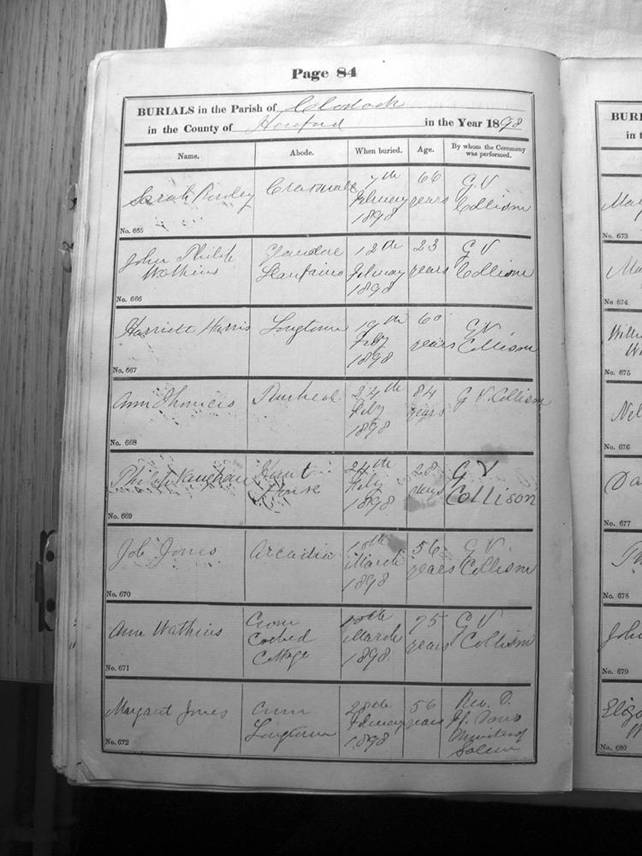 Page 84
BURIALS in the Parish of Clodock
in the County of Hereford in the Year 1898
Name. Abode. When buried. Age. By whom the Ceremony was performed.
Sarah Craswall 7th February 1898 66 years G V Collison
No. 665
John Philip Watkins Llanfaino 12th February 1898 23 years G V Collison
No. 666
Harriett Harris Longtown 19th Feby 1898 60 years G V Collison
No. 667
Ann Thomas 24th Feby 1898 84 years G V Collison
No. 668
Philip Vaughan Court House 24th Feby 1898 28 G V Collison
No. 669
Job Jones Arcadia March 1898 56 years G V Collison
No. 670
Ann Watkins Coed Cottage March 1898 75 years G V Collison
No. 671
Margaret Jones Longtown 28th February 1898 56 years Rev. D. Minister of Salem
No. 672
BURI
in t
Ma
No. 673
Ma
No. 674
Willi
Wa
No. 675
Nel
No. 676
Da
No. 677
No. 678
John
No. 679
Eliz
No. 680